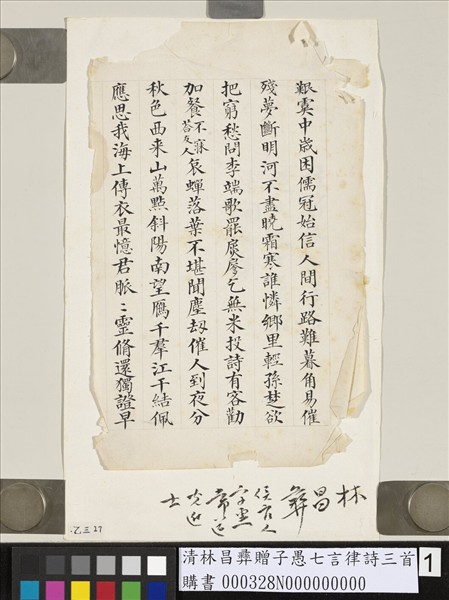 艱虞中歲困儒冠始信人間行路難暮角易催
殘夢斷明河不盡曉霜寒誰憐鄉里輕孫楚欲
把窮愁問李端歌罷扊廖乞無米投詩有客勸
加餐不寐答友人哀蟬落葉不堪聞塵刼催人到夜分
秋色西来山萬點斜陽南望鴈千羣江干結佩
應思我海上傳衣最憶君脈〻靈脩還獨證早
林昌彝
侯官人
字惠
常道
光進
士
乙三27
清林昌彝贈子愚七言律詩三首
購書 000328N000000000
1